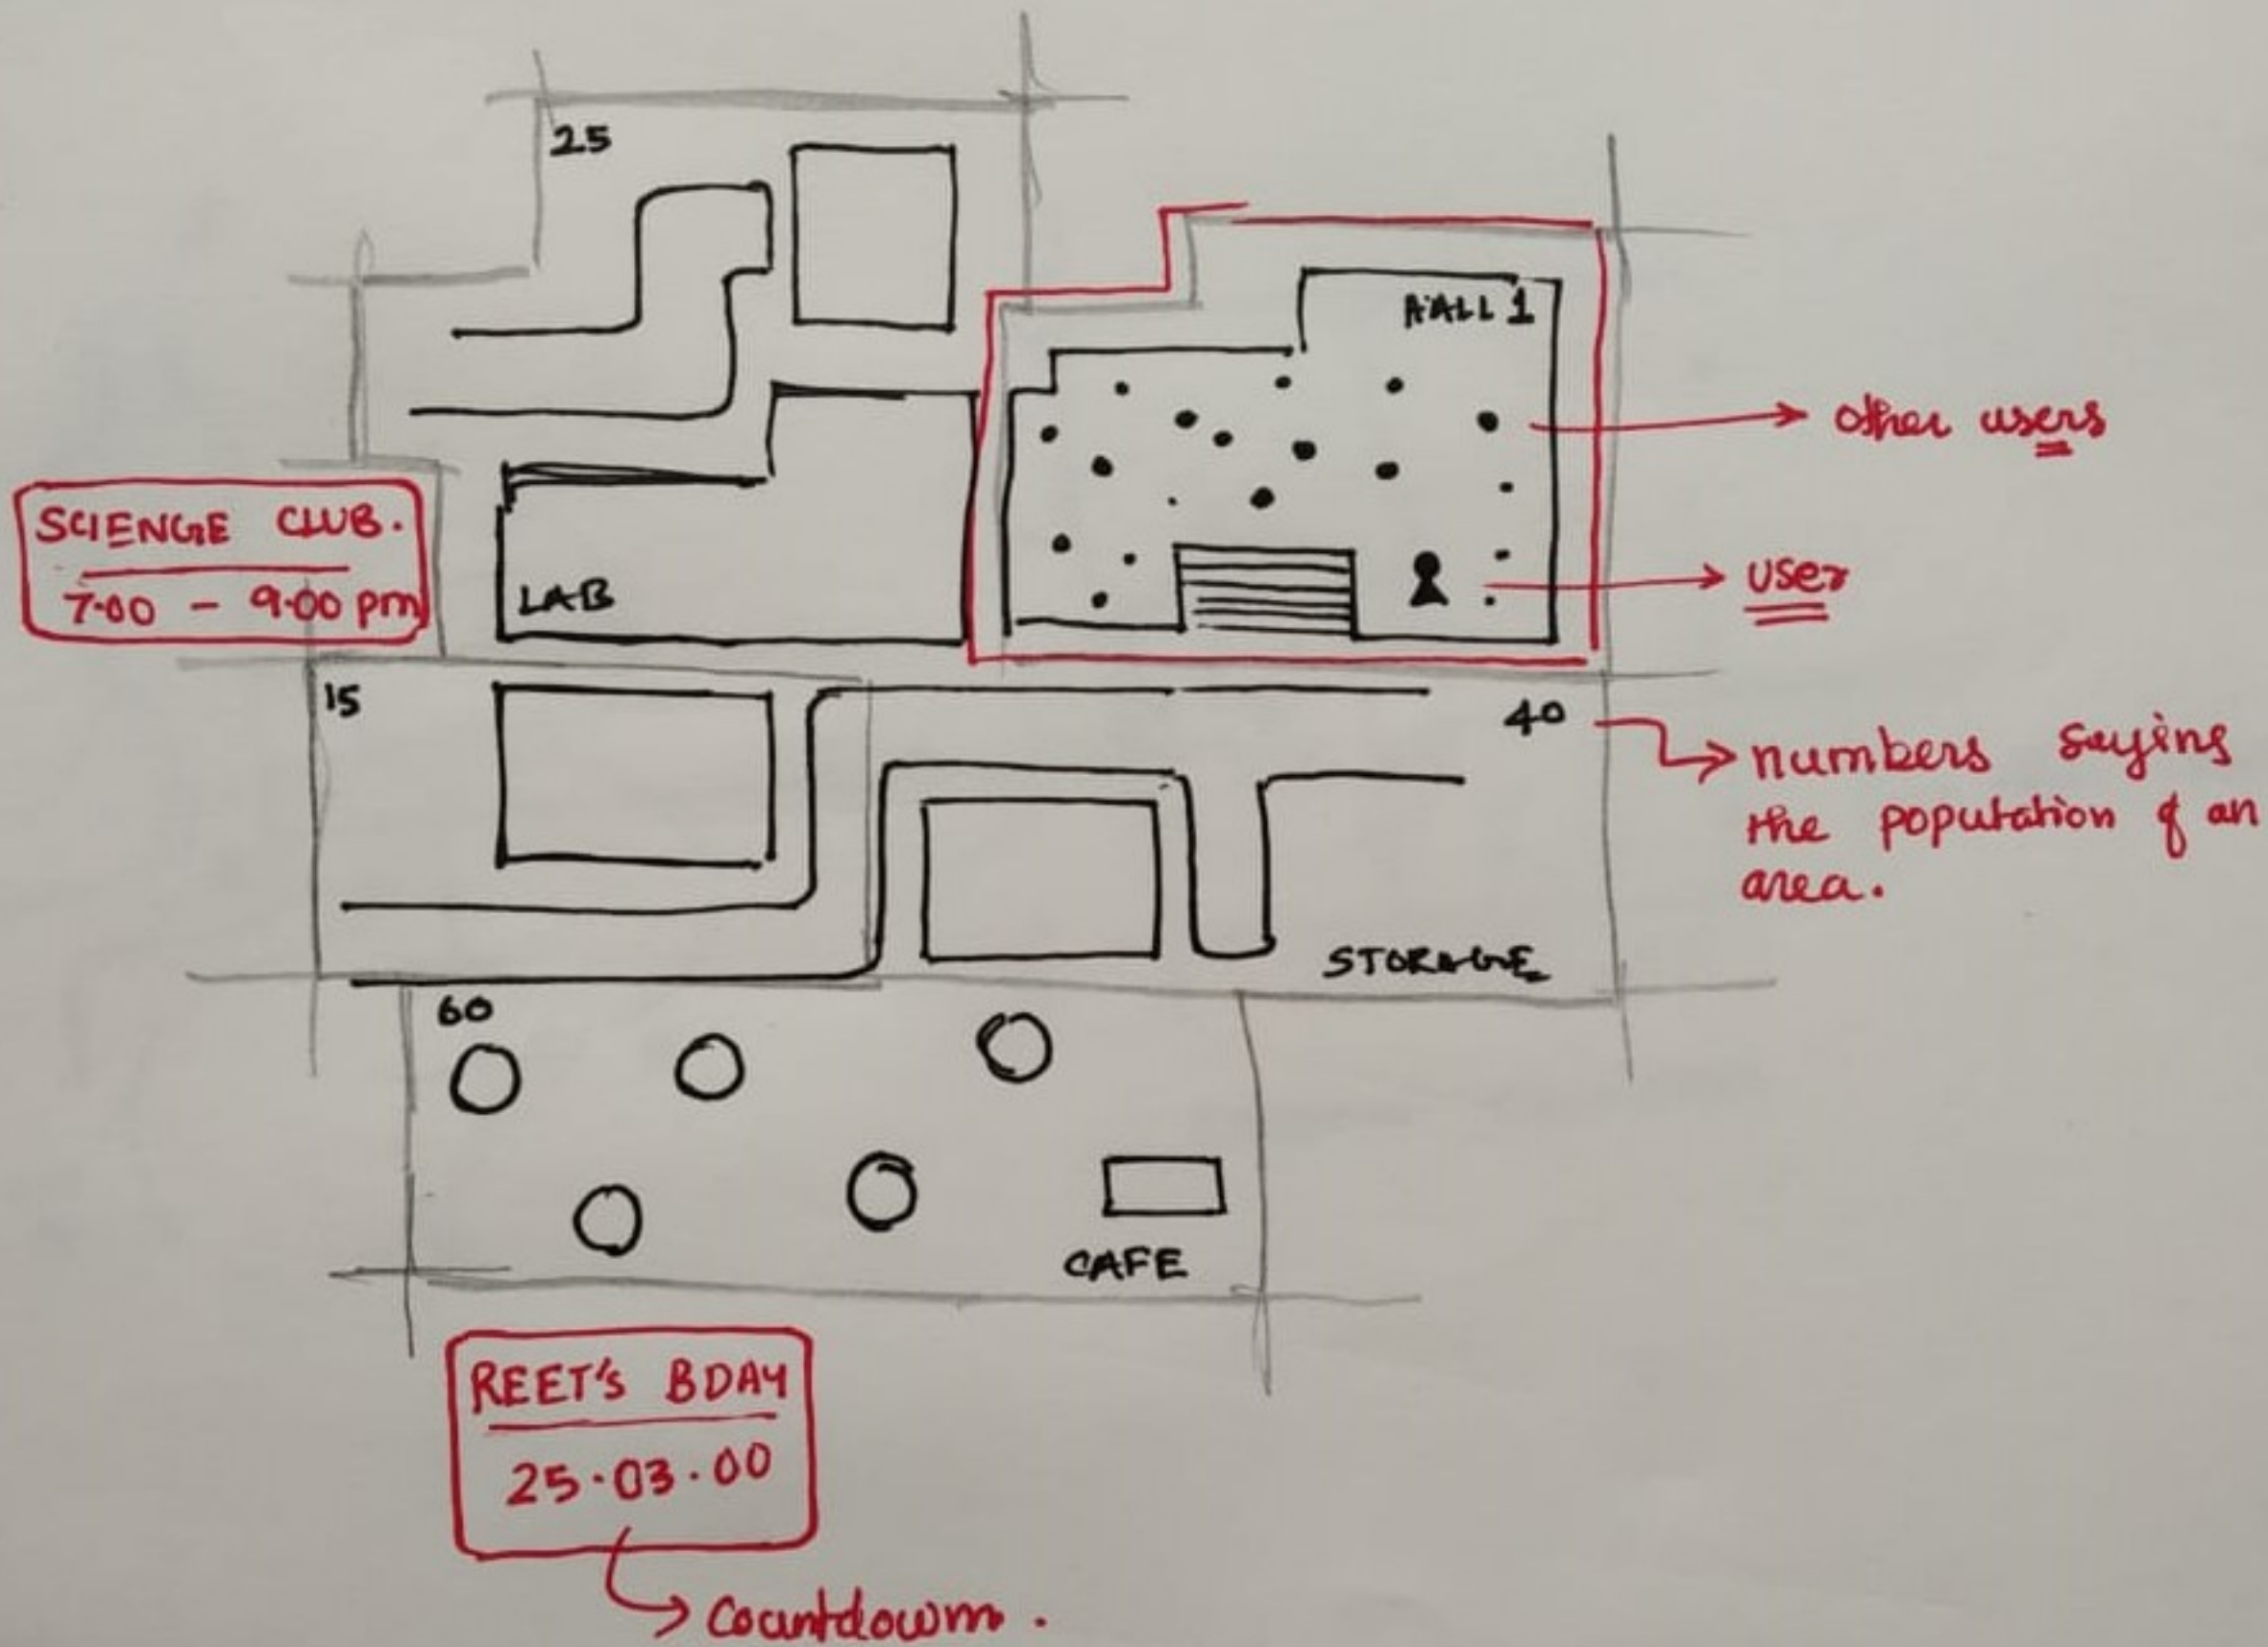 25
HALL 1
other users
SCIENCE CLUB.
7.00 - 9.00 pm
LAB
user
15
40
numbers saying
the population of an
area.
STORAGE
60
CAFE
REET'S BDAY
25.03.00
Countdown.